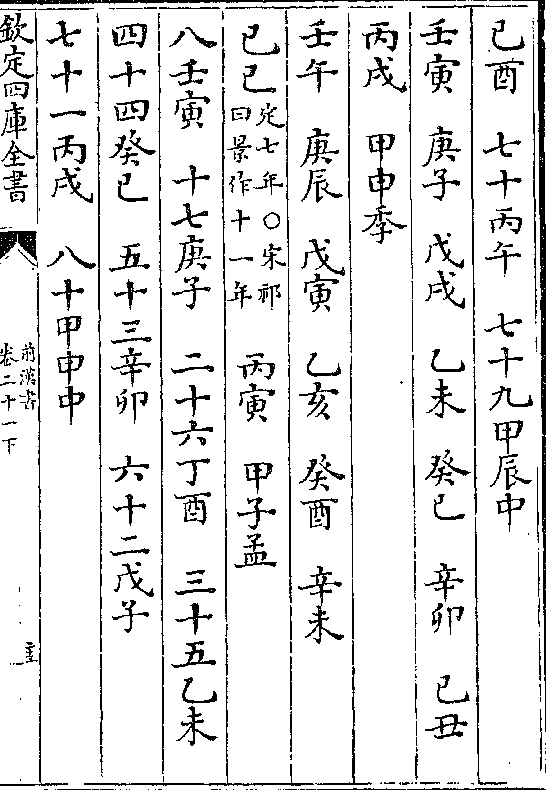 己酉 七十丙午 七十九甲辰中
壬寅 庚子 戊戌 乙未 癸巳 辛卯 己丑
丙戌 甲申季
壬午 庚辰 戊寅 乙亥 癸酉 辛未
己巳 定七年○宋祁曰景作十一年 丙寅 甲子孟
八壬寅 十七庚子 二十六丁酉 三十五乙未
四十四癸巳 五十三辛卯 六十二戊子
七十一丙戌 八十甲申中
欽定四庫全書
前漢書
卷二十一下